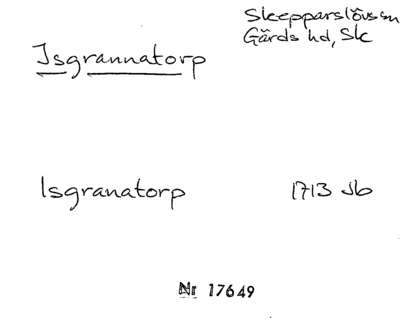 Skepparslövs sn
Gärds hd, Sk
Isgrannatorp
Isgranatorp 1713 Jb
Nr 17649